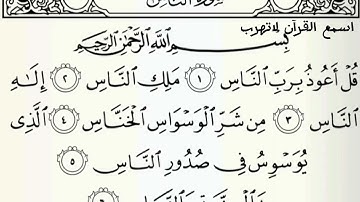 اسمع القرآن لاتهرب
بِسْمِ ٱللَّهِ ٱلرَّحْمَٰنِ ٱلرَّحِيمِ
قُلْ أَعُوذُ بِرَبِّ ٱلنَّاسِ ١ مَلِكِ ٱلنَّاسِ ٢ إِلَٰهِ
ٱلنَّاسِ ٣ مِن شَرِّ ٱلْوَسْوَاسِ ٱلْخَنَّاسِ ٤ ٱلَّذِى
يُوَسْوِسُ فِى صُدُورِ ٱلنَّاسِ ٥